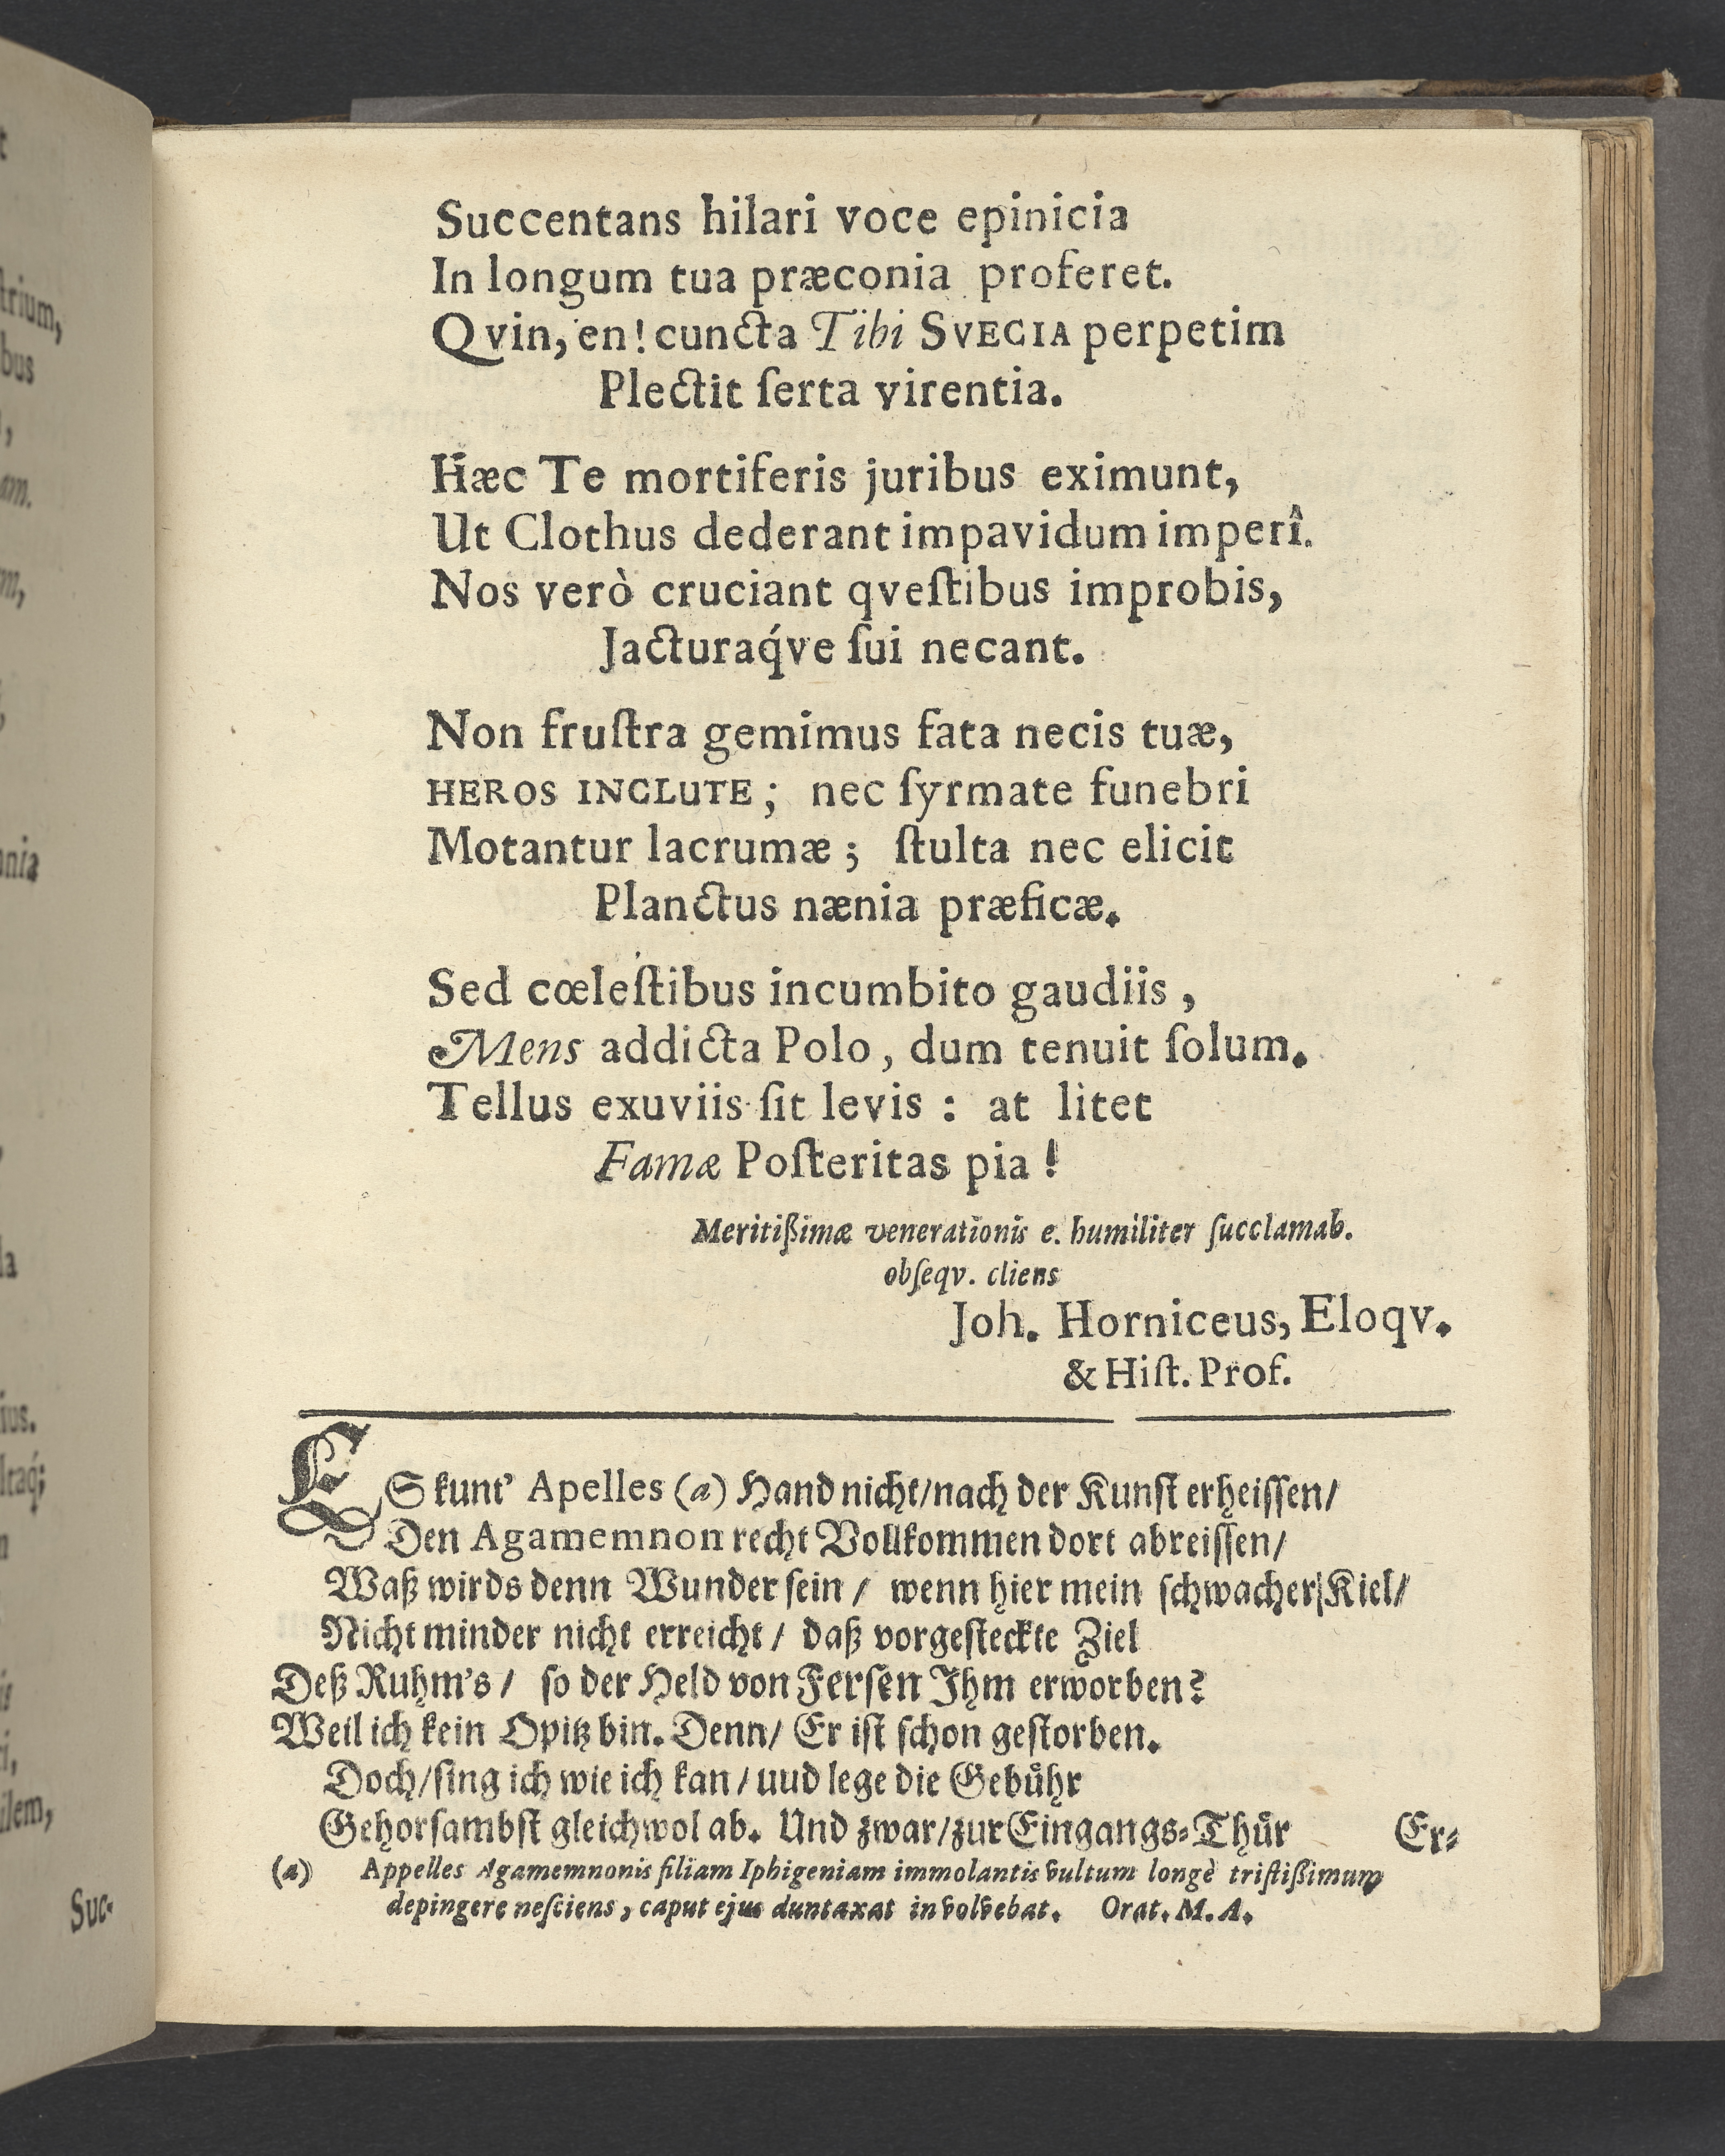 Succentans hilari voce epinicia
In longum tua præconia proferet.
Qvin, en! cuncta Tibi SVECIA perpetim
Plectit ſerta virentia.
Hæc Te mortiferis juribus eximunt,
Ut Clothus dederant impavidum imperî.
Nos verò cruciant qveſtibus improbis,
Jacturaq́ve ſui necant.
Non fruſtra gemimus fata necis tuæ,
HEROS INCLUTE; nec ſyrmate funebri
Motantur lacrumæ; ſtulta nec elicit
Planctus nænia præficæ.
Sed cœleſtibus incumbito gaudiis,
Mens addicta Polo, dum tenuit ſolum.
Tellus exuviis ſit levis: at litet
Famæ Poſteritas pia!
Meritißimæ venerationis e. humiliter ſucclamab.
obſeqv. cliens
Joh. Horniceus, Eloqv.
& Hiſt. Prof.
ES kunt' Apelles (a) Hand nicht/nach der Kunſt erheiſſen/
Den Agamemnon recht Vollkommen dort abreiſſen/
Waß wirds denn Wunder ſein/ wenn hier mein ſchwacher Kiel/
Nicht minder nicht erreicht/ daß vorgeſteckte Ziel
Deß Ruhm's/ ſo der Held von Ferſen Ihm erworben?
Weil ich kein Opitz bin. Denn/ Er iſt ſchon geſtorben.
Doch/ſing ich wie ich kan/uud lege die Gebuͤhr
Gehorſambſt gleichwol ab. Und zwar/zur Eingangs-Thuͤr
Er-
(a) Appelles Agamemnonis filiam Iphigeniam immolantis vultum longè triſtißimum
depingere neſciens, caput ejus duntaxat involvebat. Orat. M. A.
trium,
bus
am.
ius.
ilem,
Suc-